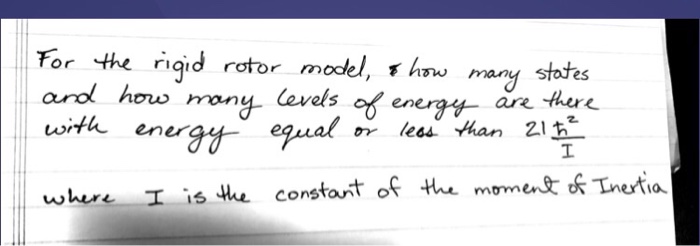 For the rigid rotor model, how many states
and how many levels of energy are there
with energy equal or less than 21 ħ²/I
where I is the constant of the moment of Inertia